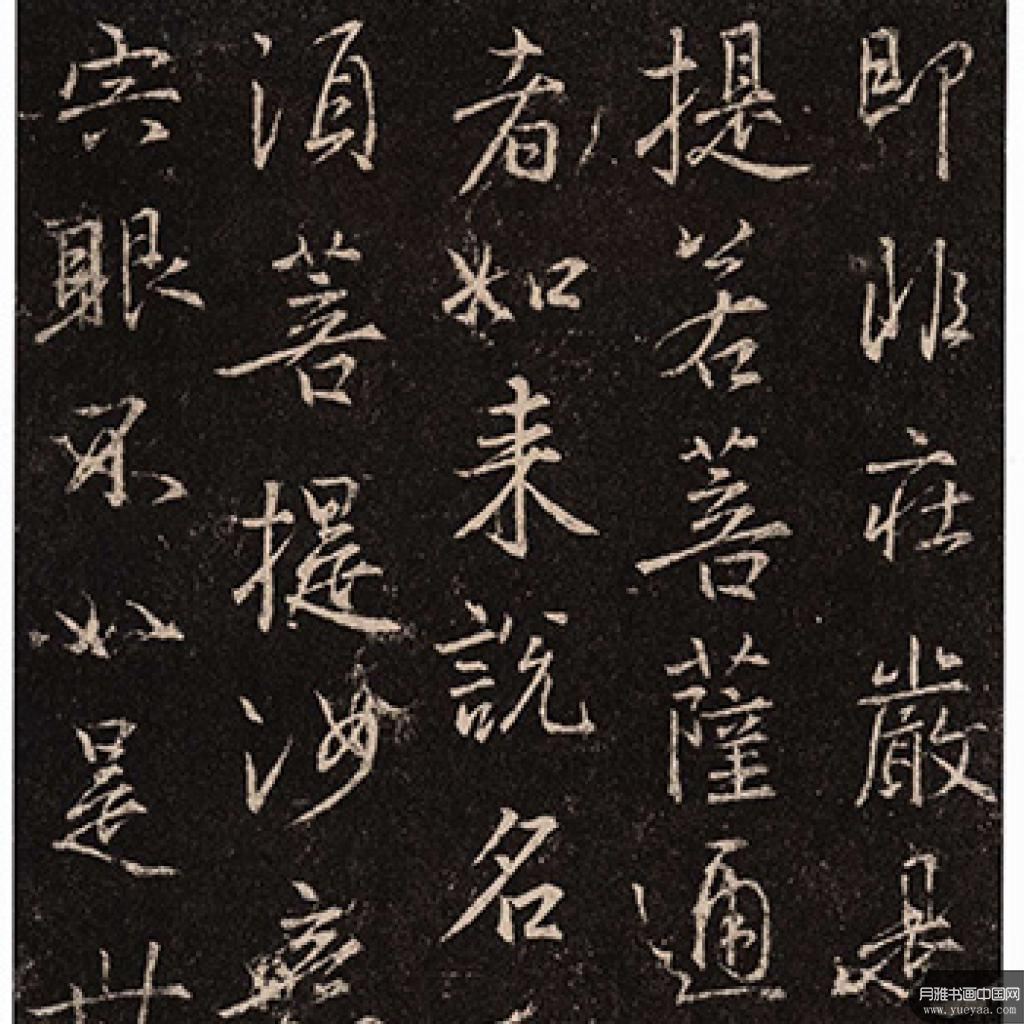 即非莊嚴是
提若菩薩通
者如來說名
須菩提於意
宍眼不如是世
月雅书画中国网
www.yueyaa.com